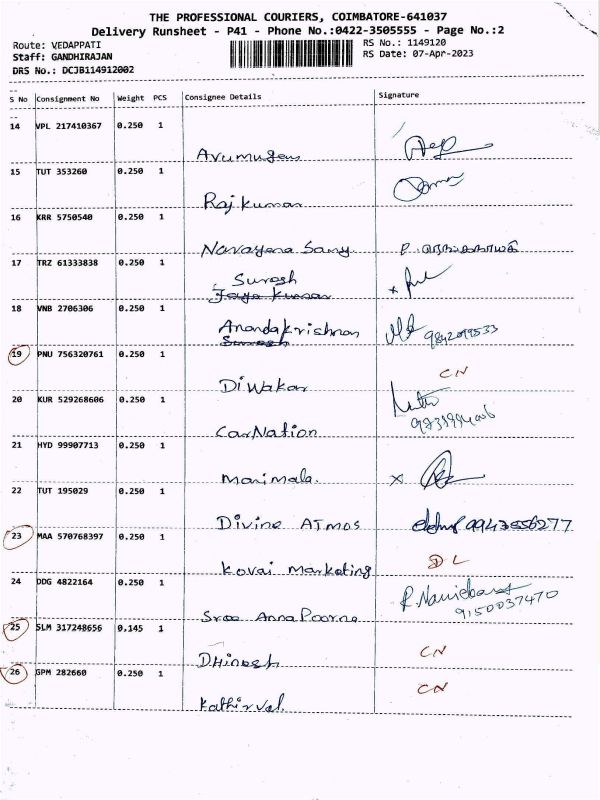 THE PROFESSIONAL COURIERS, COIMBATORE-641037
Delivery Runsheet - P41 - Phone No.:0422-3505555 - Page No.:2
Route: VEDAPPATI
RS No.: 1149120
Staff: GANDHIRAJAN
RS Date: 07-Apr-2023
DRS No.: DCJB114912002
S No Consignment No Weight PCS Consignee Details Signature
14 VPL 217410367 0.250 1
Arumugam
15 TUT 353260 0.250 1
Rajkumar
16 KRR 5750540 0.250 1
Narayana Samy
17 TRZ 61333838 0.250 1
Suresh
Jaya Kumar
18 VNB 2706306 0.250 1
Anandakrishnan 9842099533
Suresh
19 PNU 756320761 0.250 1
Diwakar CN
20 KUR 529268606 0.250 1
CarNation
21 HYD 99907713 0.250 1
Marimala.
22 TUT 195029 0.250 1
Divine ATMOS
23 MAA 570768397 0.250 1
Kovai Marketing DL
24 DDG 4822164 0.250 1
Sree AnnaPoorna 9150037470
25 SLM 317248656 0.145 1
DHinesh CN
26 GPM 282660 0.250 1
Kathirval. CN